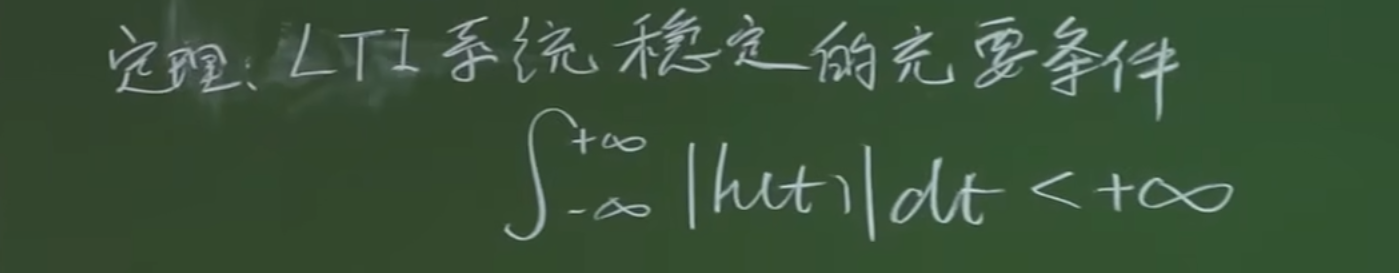 定理：LTI系统稳定的充要条件
∫_{-∞}^{+∞} |h(t)|dt < +∞